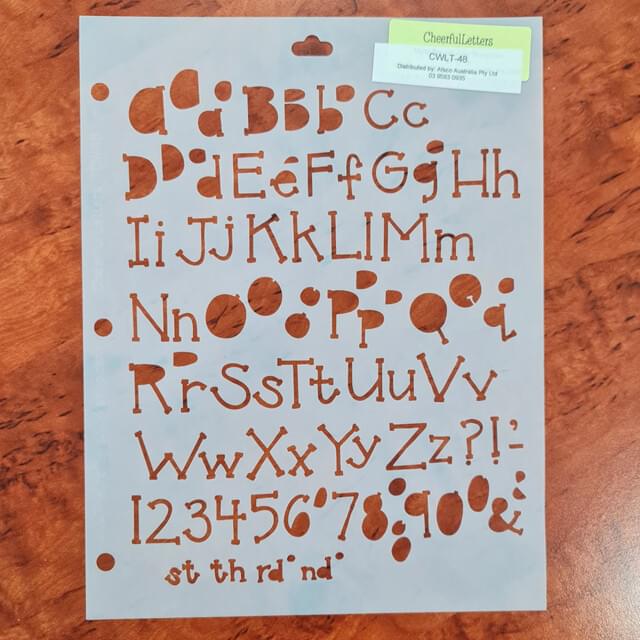 CheerfulLetters
CWLT-48
Distributed by: Allsco Australia Pty Ltd
03 9593 0935
Aa Bb Cc
Dd Ee Ff Gg Hh
Ii Jj Kk Ll Mm
Nn Oo Pp Qq
Rr Ss Tt Uu Vv
Ww Xx Yy Zz ? ! ' -
1 2 3 4 5 6 7 8 9 0 &
st th rd nd